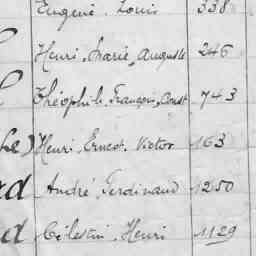 Eugène, Louis 338
Henri, Marie, Auguste 246
Théophile, François, Const 743
he) Henri, Ernest, Victor 163
d André, Ferdinand 1250
d Célestin, Henri 1129